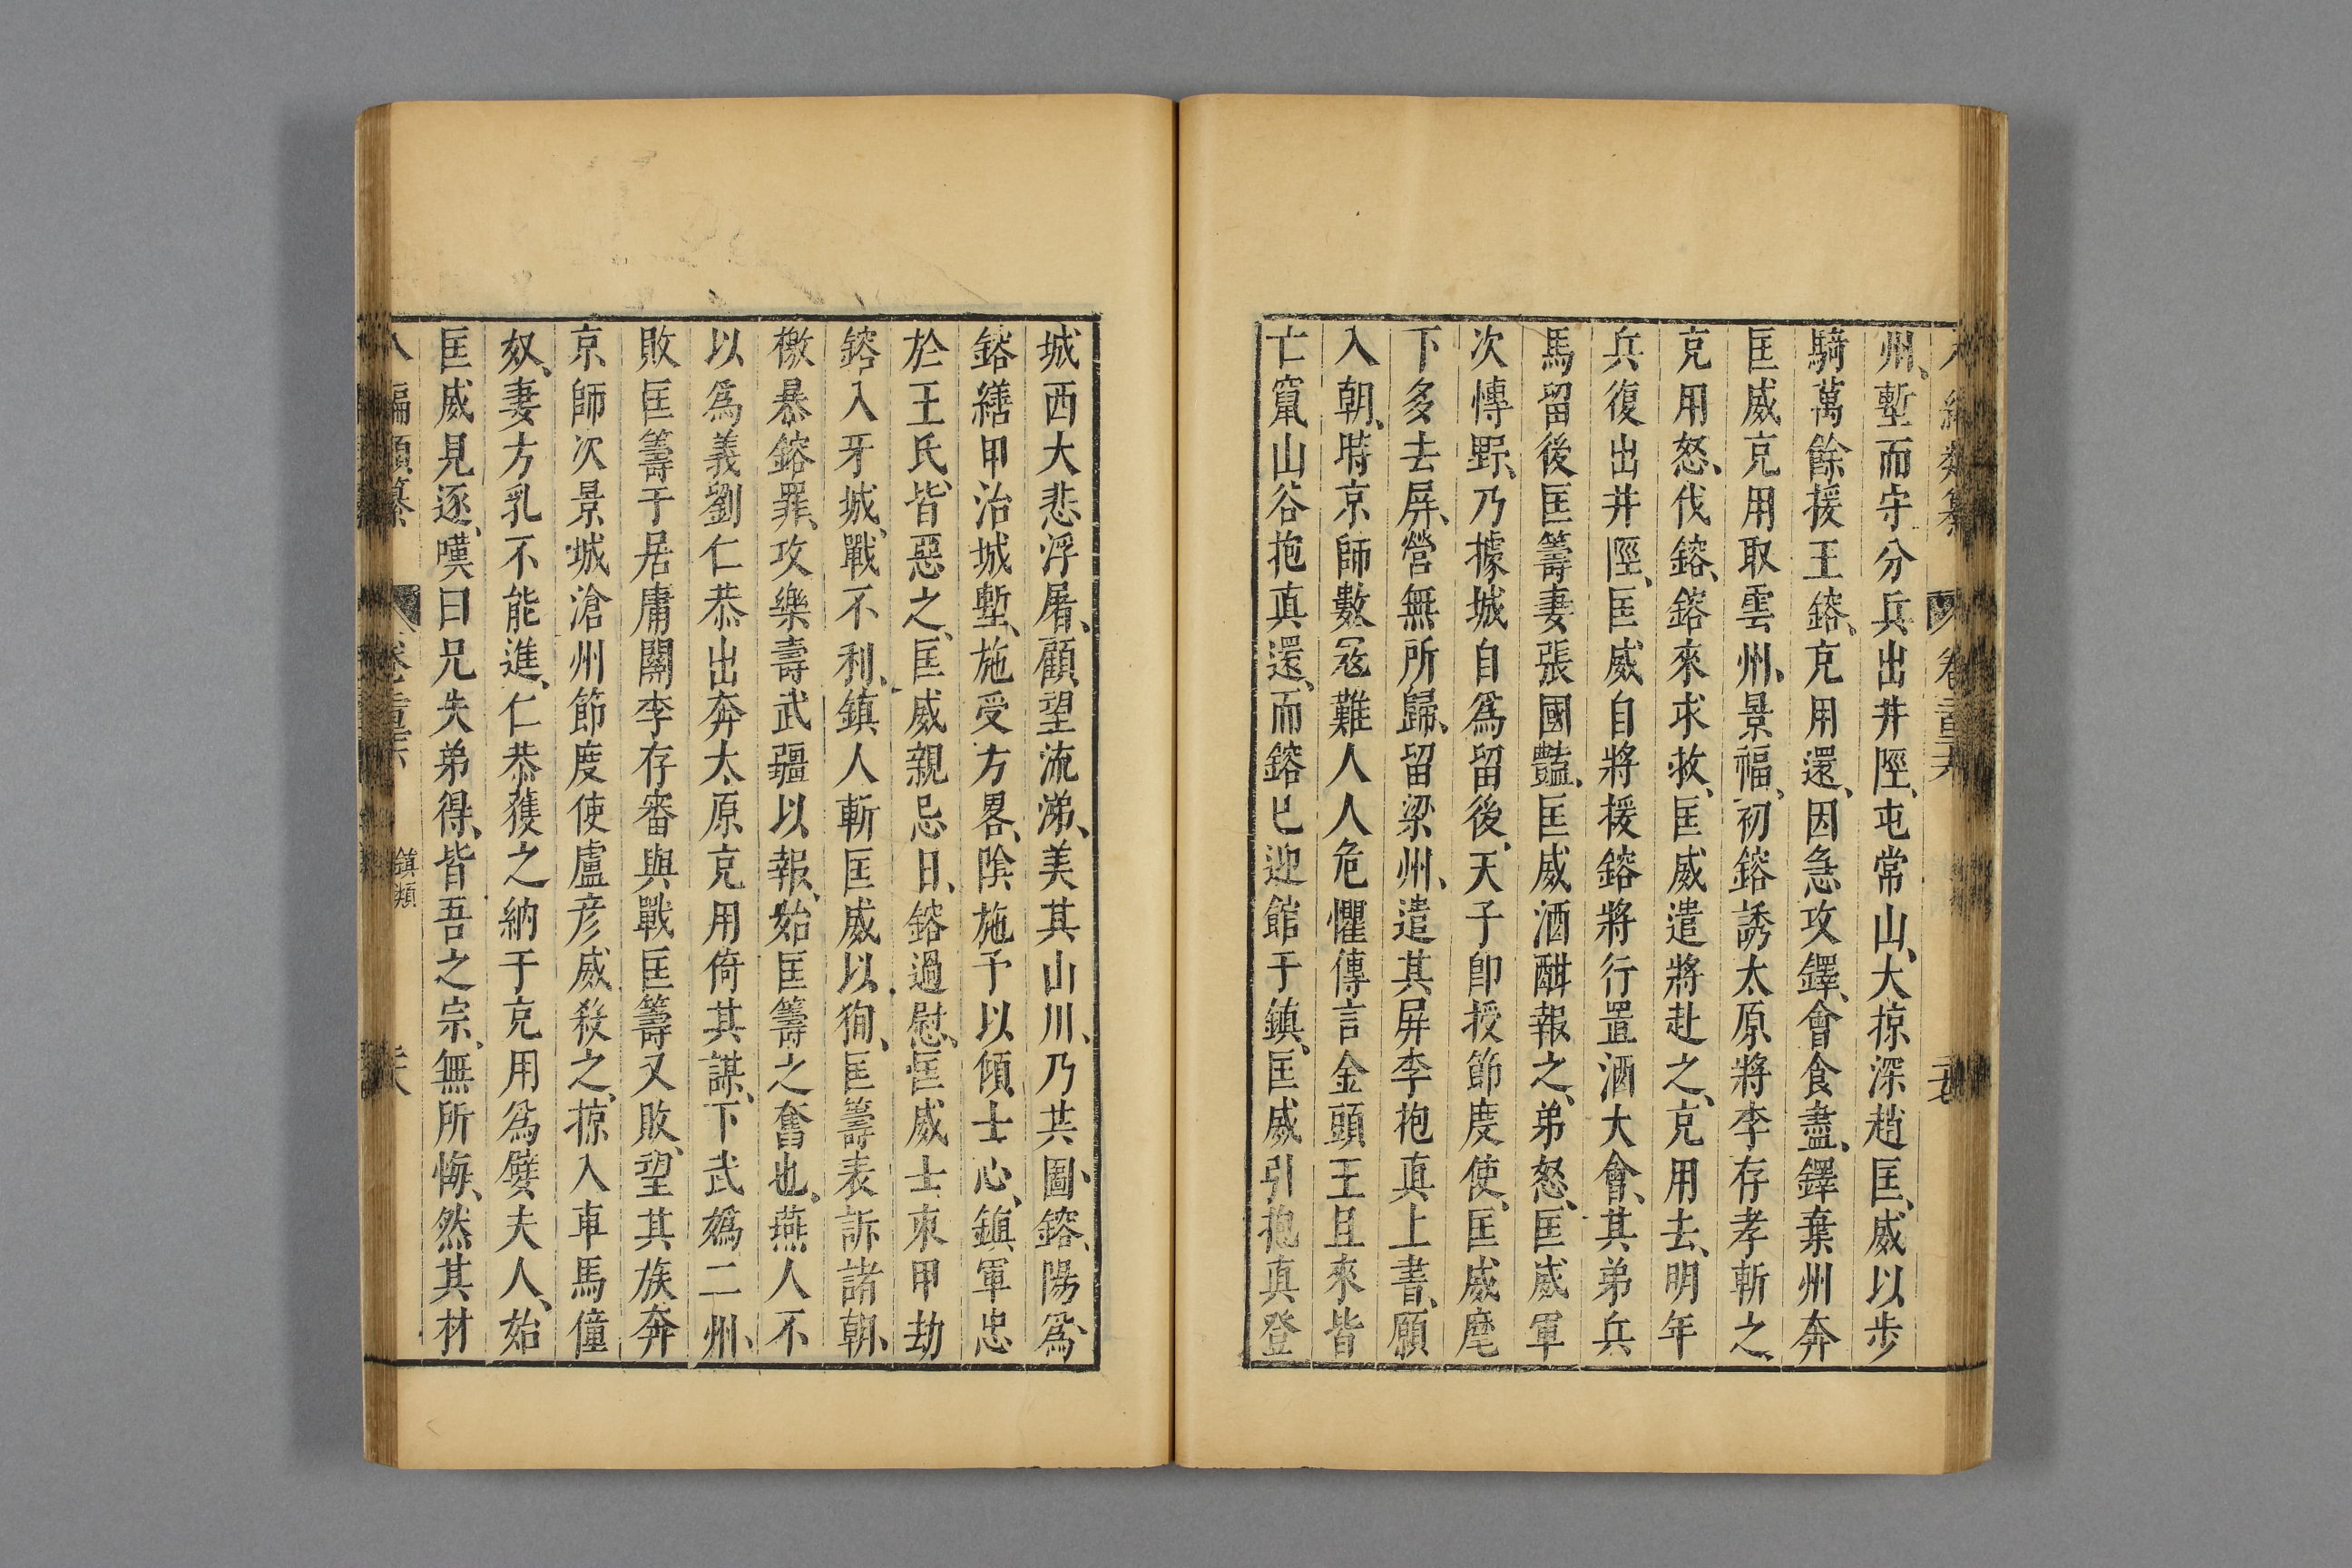 州、塹而守分兵出井陘、屯常山、大掠深趙匡、威以步
騎萬餘援王鎔、克用還、因急攻鐸、會食盡、鐸棄州奔
匡威克用取雲州、景福、初鎔誘太原將李存孝斬之、
克用怒、伐鎔、鎔來求救、匡威遣將赴之、克用去、明年
兵復出井陘、匡威自將援鎔將行置酒大會、其弟兵
馬留後匡籌妻張國豔、匡威酒酣報之、弟怒、匡威軍
次慱野、乃據城自爲留後、天子卽授節度使、匡威麾
下多去屏、營無所歸、留梁州、遣其屏李抱真上書、願
入朝、時京師數冦難人人危懼傳言金頭王且來皆
亡竄山谷抱真還、而鎔已迎館于鎮、匡威引抱真登
城西大悲浮屠、顧望流涕、美其山川、乃共圖鎔、陽爲、
鎔繕甲治城塹、施受方畧、陰施予以傾士心、鎮軍忠
於王氏、皆惡之、匡威親忌日、鎔過慰、匡威士衷甲劫
鎔入牙城、戰不利、鎮人斬匡威以狥、匡籌表訴諸朝、
檄暴鎔罪、攻樂壽武疆以報、始匡籌之奮也、燕人不
以爲義劉仁恭出奔太原克用倚其謀、下武媯二州、
敗匡籌于居庸關李存審與戰匡籌又敗、望其族奔
京師次景城滄州節度使盧彦威殺之、掠入車馬僮
奴、妻方乳不能進、仁恭獲之納于克用爲嬖夫人、始
匡威見逐、嘆曰兄失弟得、皆吾之宗、無所悔、然其材
八編類纂 卷 鎮類